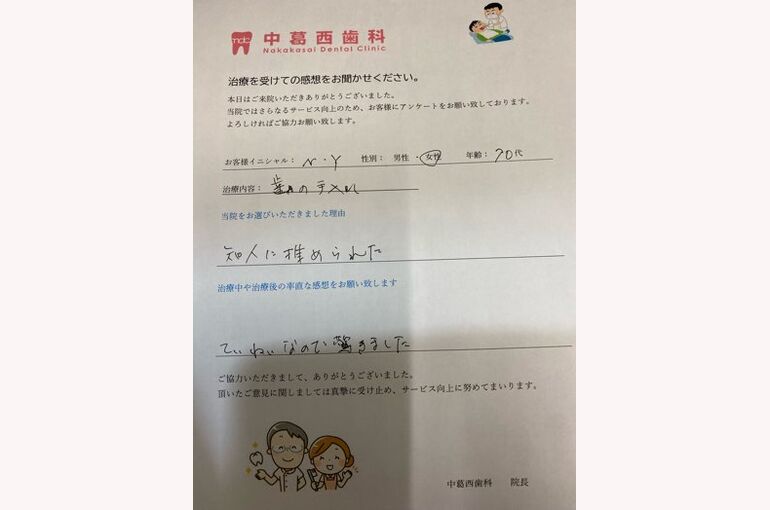 中葛西歯科
Nakakasai Dental Clinic
治療を受けての感想をお聞かせください。
本日はご来院いただきありがとうございました。
当院ではさらなるサービス向上のため、お客様にアンケートをお願い致しております。
よろしければご協力お願い致します。
お客様イニシャル： N・Y 性別： 男性 ・ 女性 年齢： 70代
治療内容： 歯の手入れ
当院をお選びいただきました理由
知人に推められた
治療中や治療後の率直な感想をお願い致します
ていねいなので驚きました
ご協力いただきまして、ありがとうございました。
頂いたご意見に関しましては真摯に受け止め、サービス向上に努めてまいります。
中葛西歯科 院長